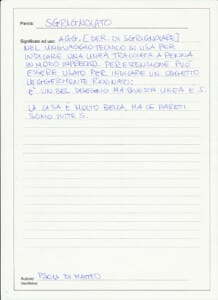 Parola: SGRIGNOLATO
Significato ed uso: AGG. [DER. DI SGRIGNOLARE]
NEL LINGUAGGIO TECNICO SI USA PER
INDICARE UNA LINEA TRACCIATA A PENNA
IN MODO IMPRECISO. PER ESTENSIONE PUÒ
ESSERE USATO PER INDICARE UN OGGETTO
LEGGERMENTE ROVINATO:
È UN BEL DISEGNO MA QUESTA LINEA È S.
LA CASA È MOLTO BELLA, MA LE PARETI
SONO TUTTE S.
Autore/
Ideatore: PAOLA DI MATTEO